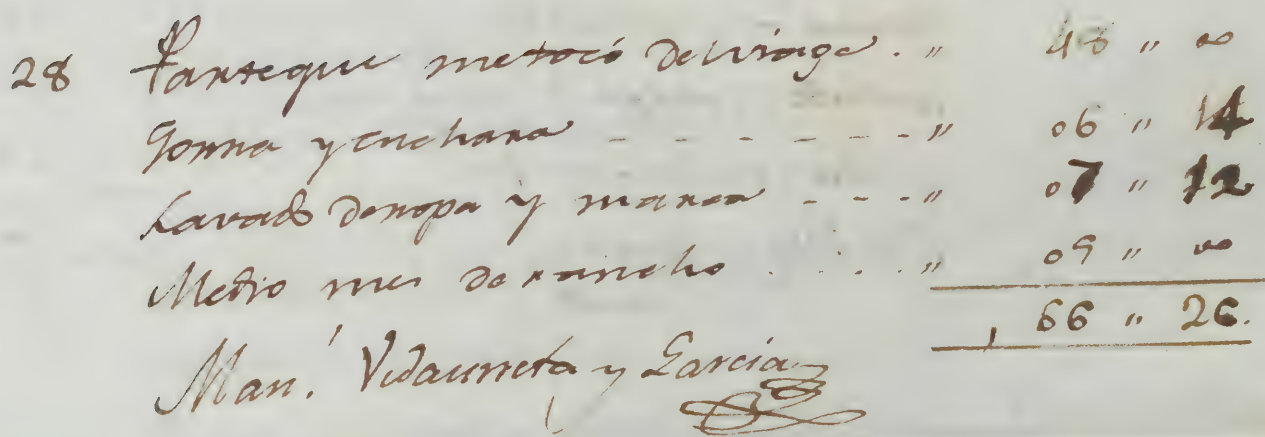 28 Parte que me tocó del viage . " 48 " 00
Gorra y cuchara - - - - - - - " 06 " 14
Lavado de ropa y marca - - - " 07 " 12
Medio mes de rancho . . . . " 05 " 00
66 " 26.
Man.l Vidaurreta y García